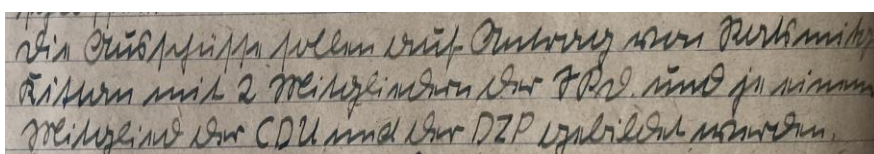 Die Ausschüsse sollen auf Antrag von Ratsmitgl.
mit 2 Mitgliedern der SPD. und je einem
Mitglied der CDU und der DZP gebildet werden.